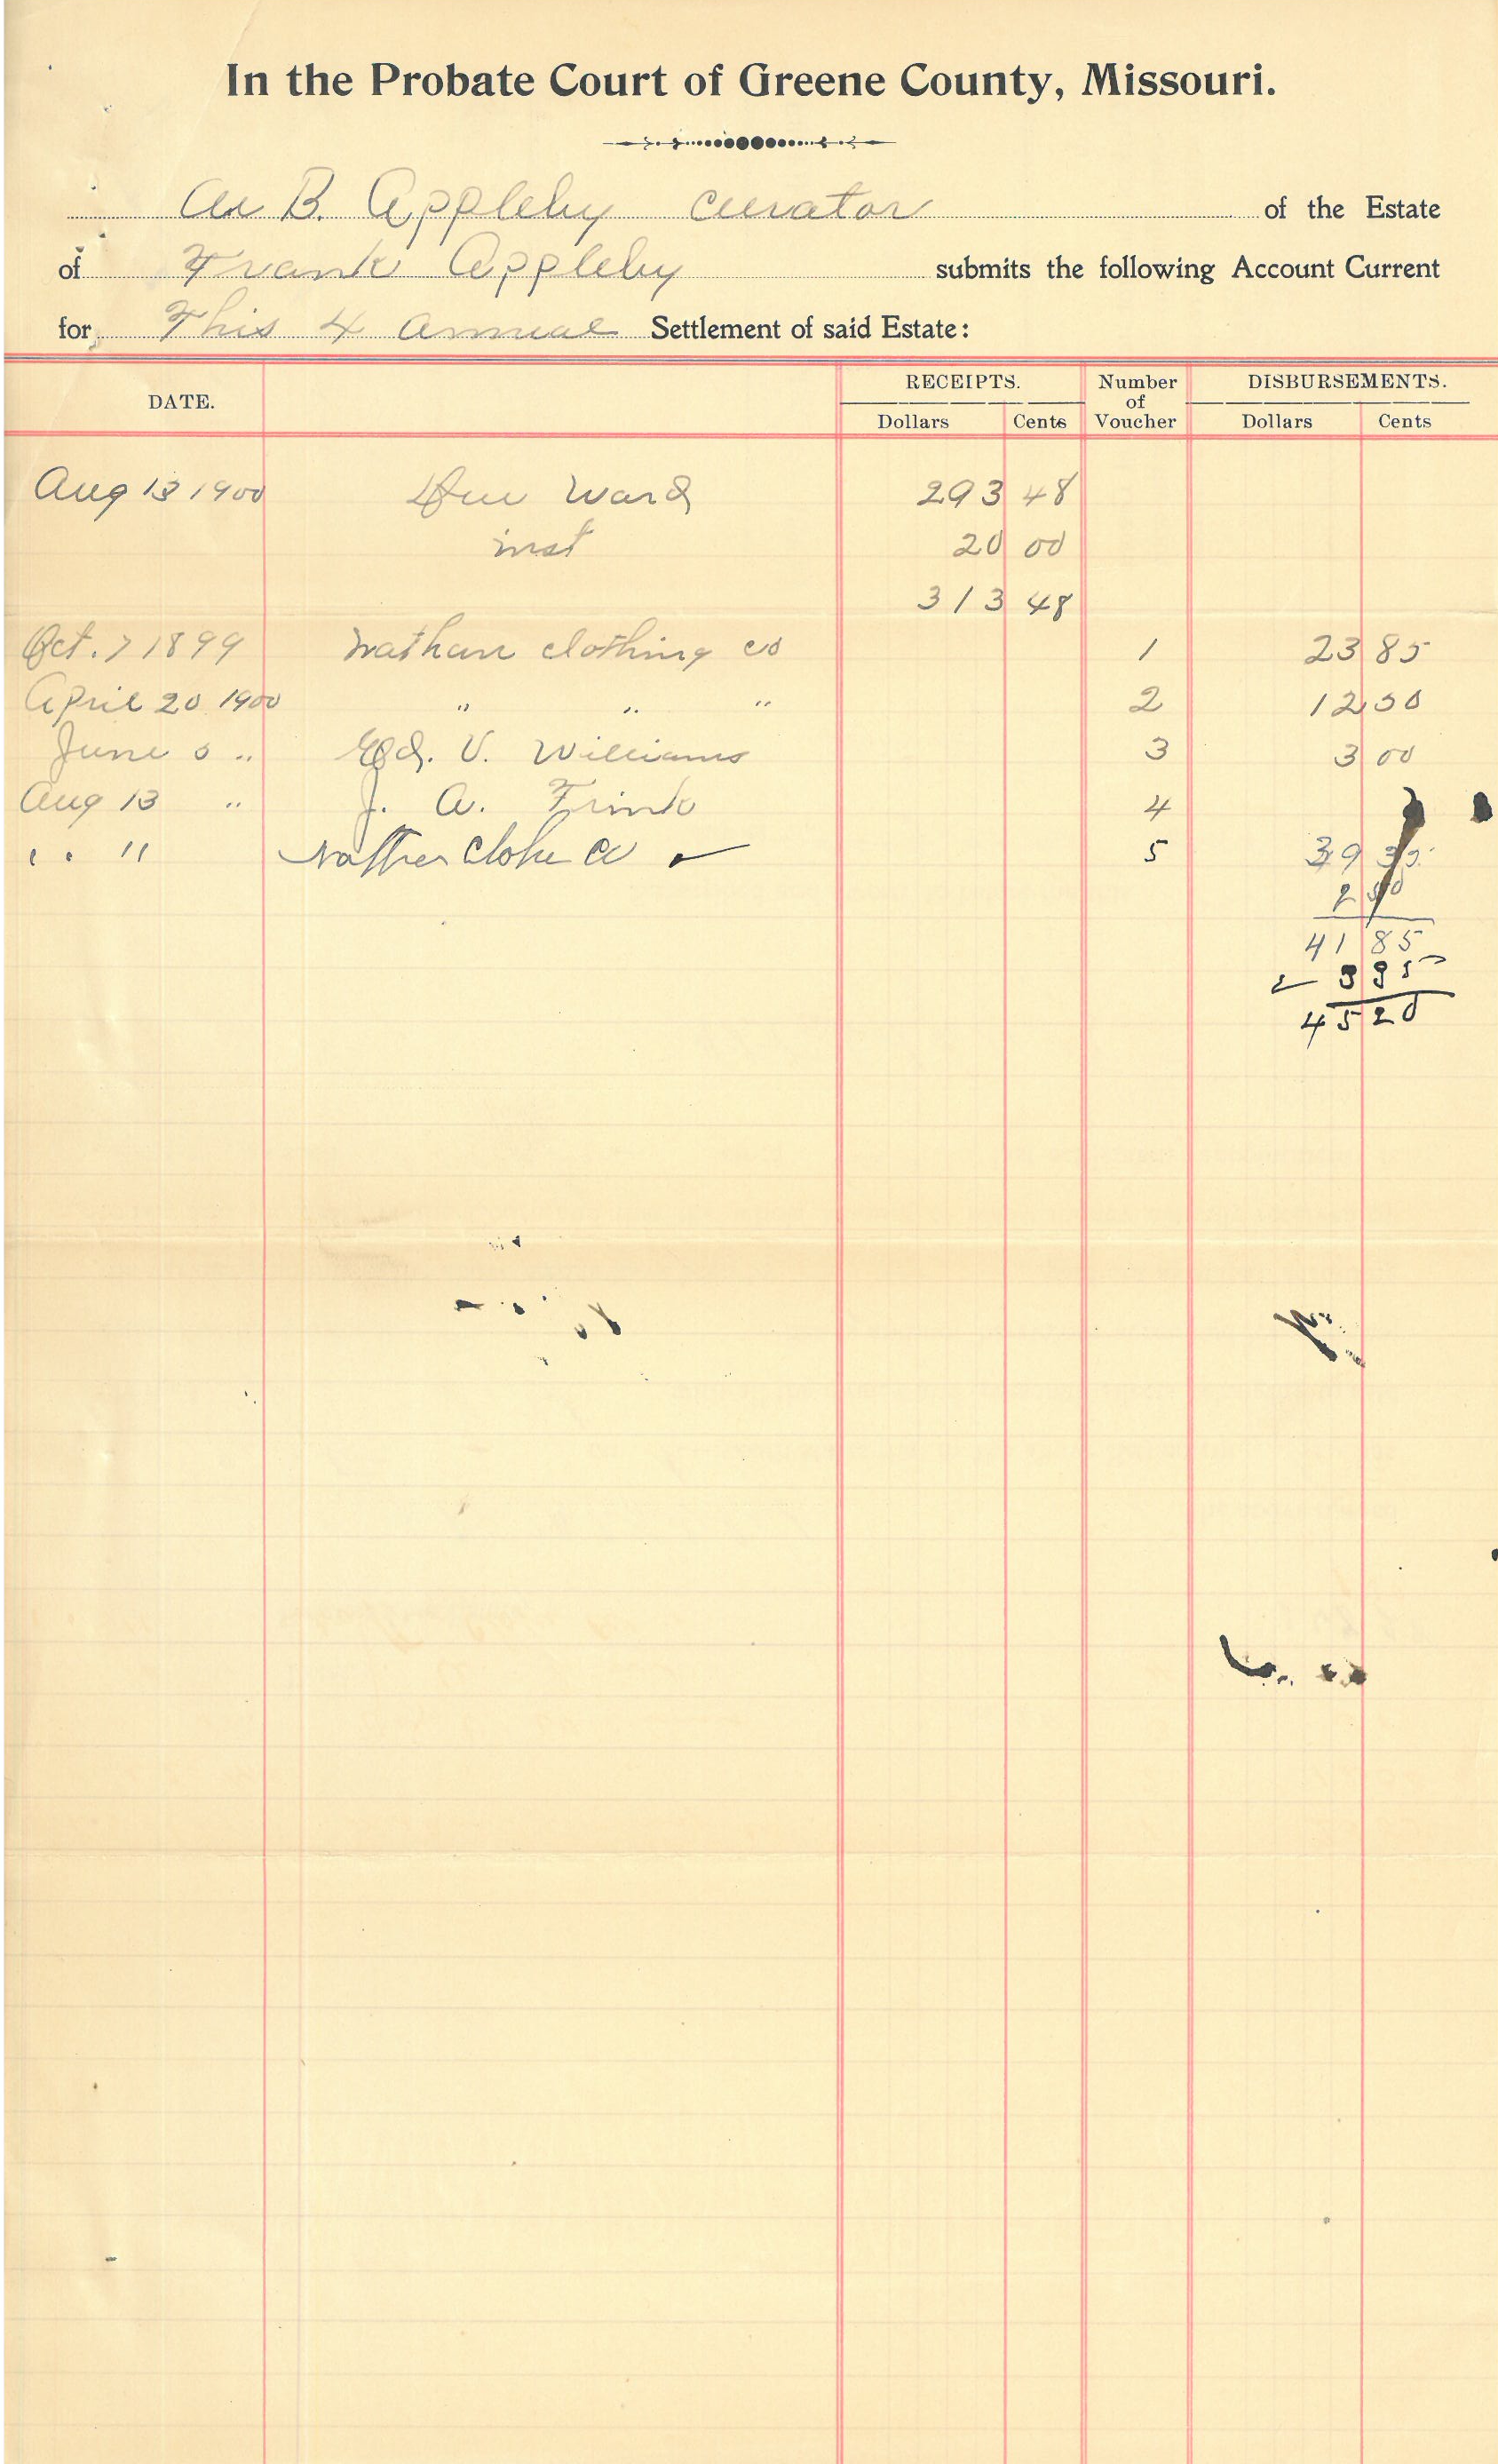 In the Probate Court of Greene County, Missouri.
B. Appleby curator of the Estate
of Frank Appleby submits the following Account Current
for This 4 annual Settlement of said Estate:
DATE. RECEIPTS. Number of Voucher DISBURSEMENTS.
Dollars Cents Dollars Cents
Aug 13 1900 Due Ward 293 48
inst 20 00
313 48
Oct. 7 1899 Nathan clothing co 1 23 85
April 20 1900 " " " 2 12 50
June " Ed. V. Williams 3 3 00
Aug 13 " J. A. Frink 4
" " " Clothe Co 5 39 35
2 50
41 85
3 35
45 20